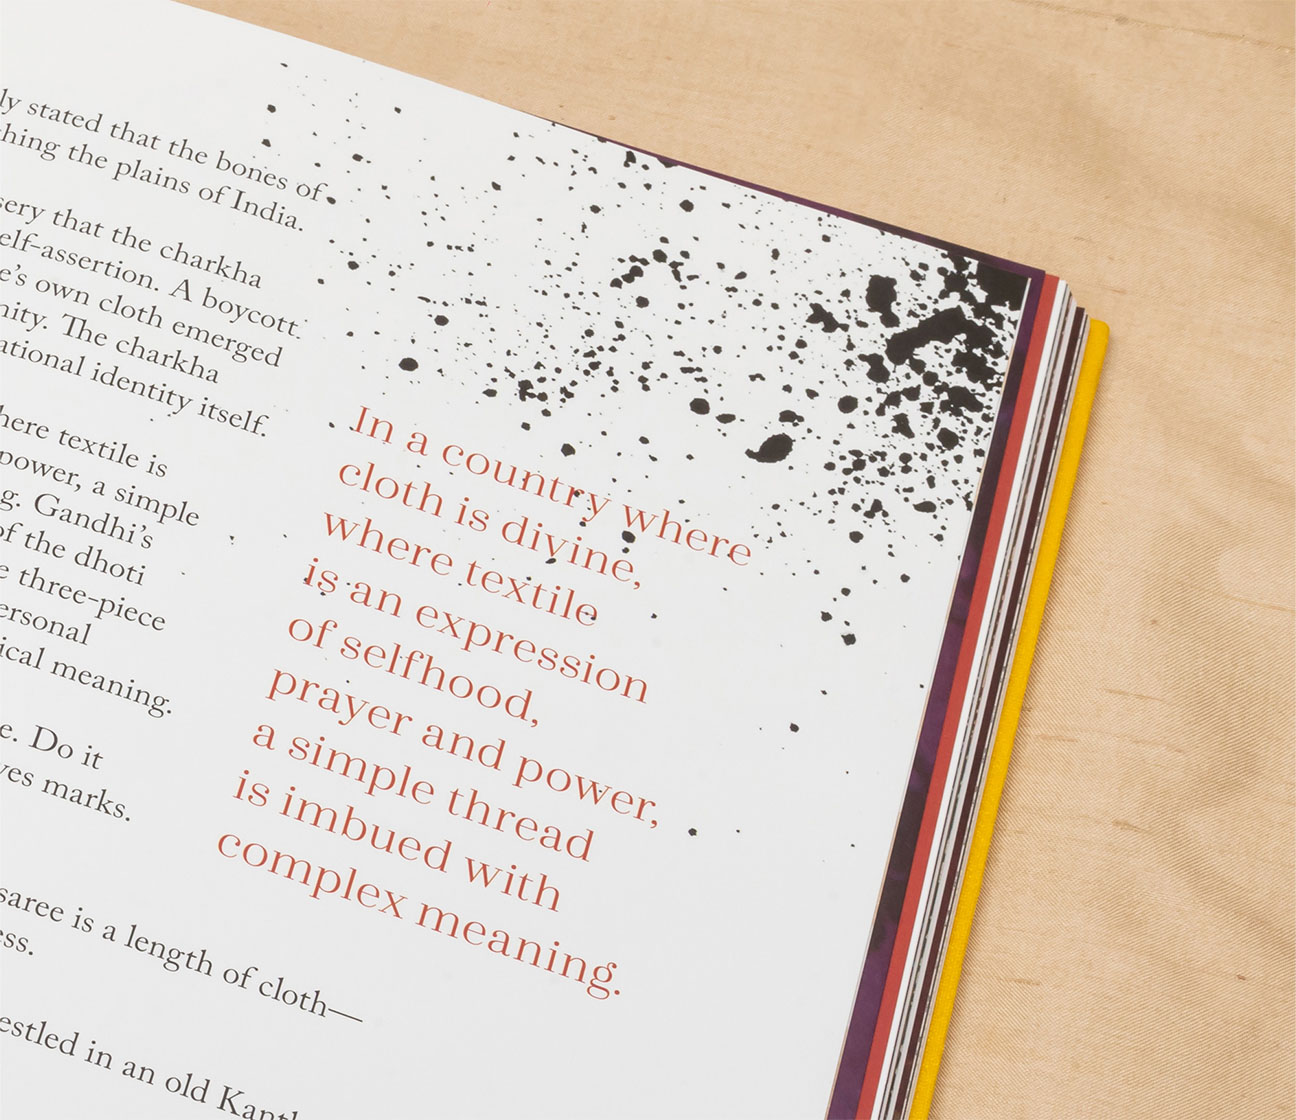 ly stated that the bones of
hing the plains of India.
sery that the charkha
elf-assertion. A boycott
e's own cloth emerged
nity. The charkha
ational identity itself.
here textile is
power, a simple
g. Gandhi's
of the dhoti
e three-piece
ersonal
ical meaning.
e. Do it
ves marks.
saree is a length of cloth—
ess.
estled in an old Kanth
In a country where
cloth is divine,
where textile
is an expression
of selfhood,
prayer and power,
a simple thread
is imbued with
complex meaning.